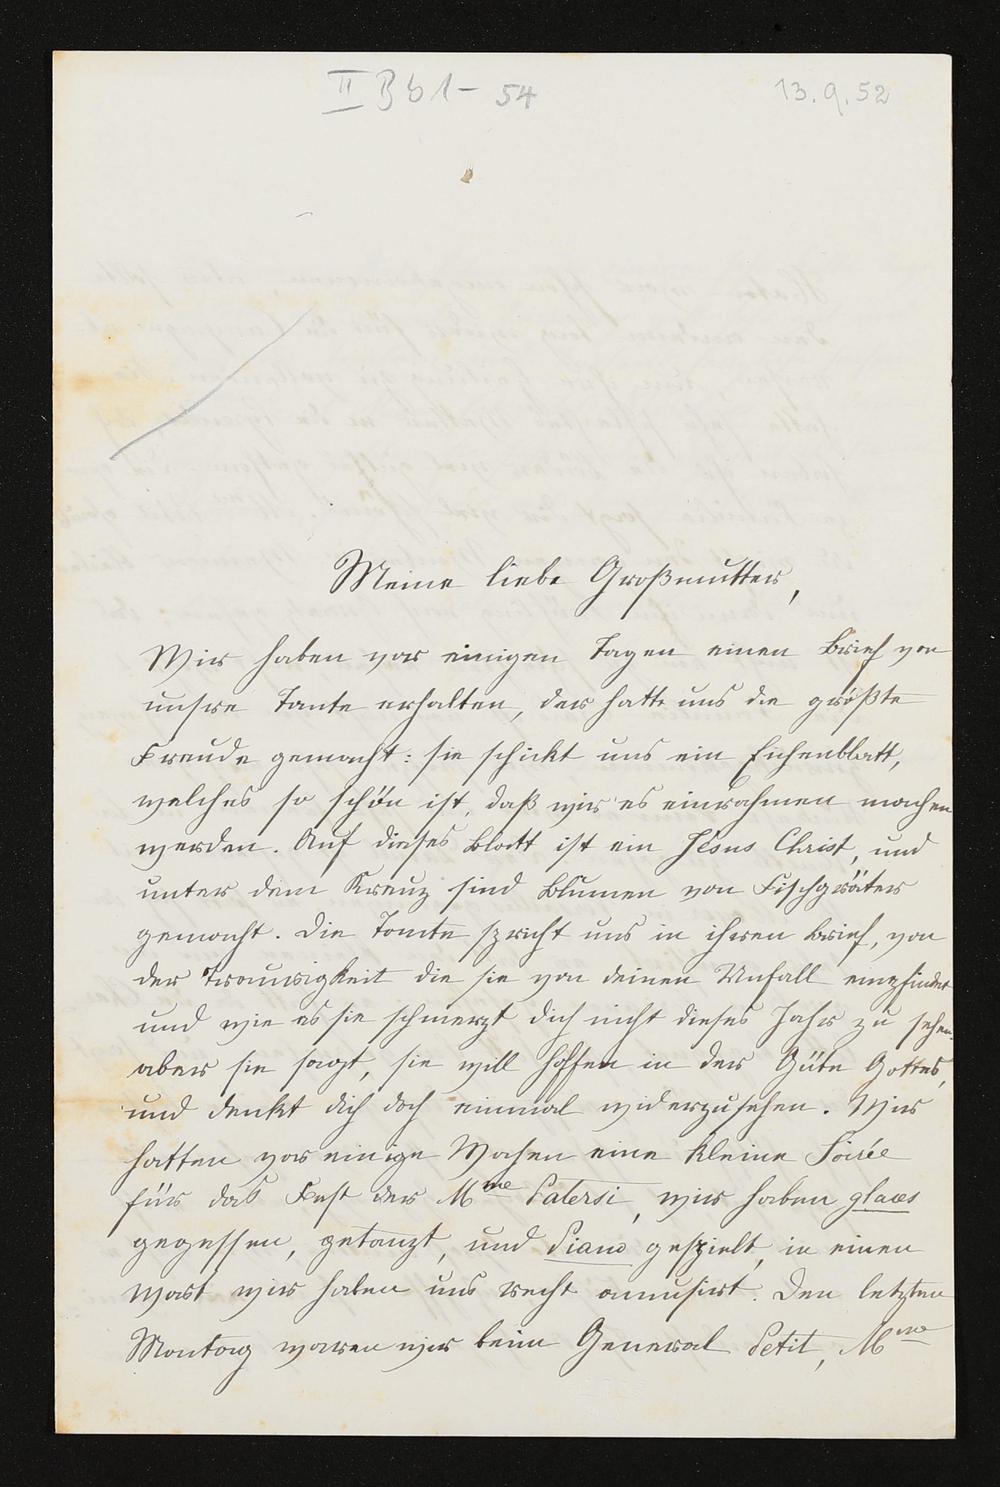 II Bb1-54
13.9.52
Meine liebe Großmutter,
Wir haben vor einigen Tagen einen Brief von
unsre Tante erhalten, der hatte uns die größte
Freude gemacht: sie schickt uns ein Eichenblatt,
welches so schön ist, daß wir es einrahmen machen
werden. Auf dieses Blatt ist ein Jesus Christ, und
unter dem Kreuz sind Blumen von Fischgräter
gemacht. Die Tante spricht uns in ihren Brief, von
der Traurigkeit die sie von deinen Unfall empfindet
und wie es sie schmerzt dich nicht dieses Jahr zu sehen.
aber sie sagt, sie will hoffen in der Güte Gottes,
und denkt dich doch einmal widerzusehen. Wir
hatten vor einige Wochen eine kleine Soirée
für das Fest der Mme Patersi, wir haben glaces
gegessen, getanzt, und Piano gespielt, in einen
Wort wir haben uns recht amusirt. Den letzten
Montag waren wir beim General Petit, Mme